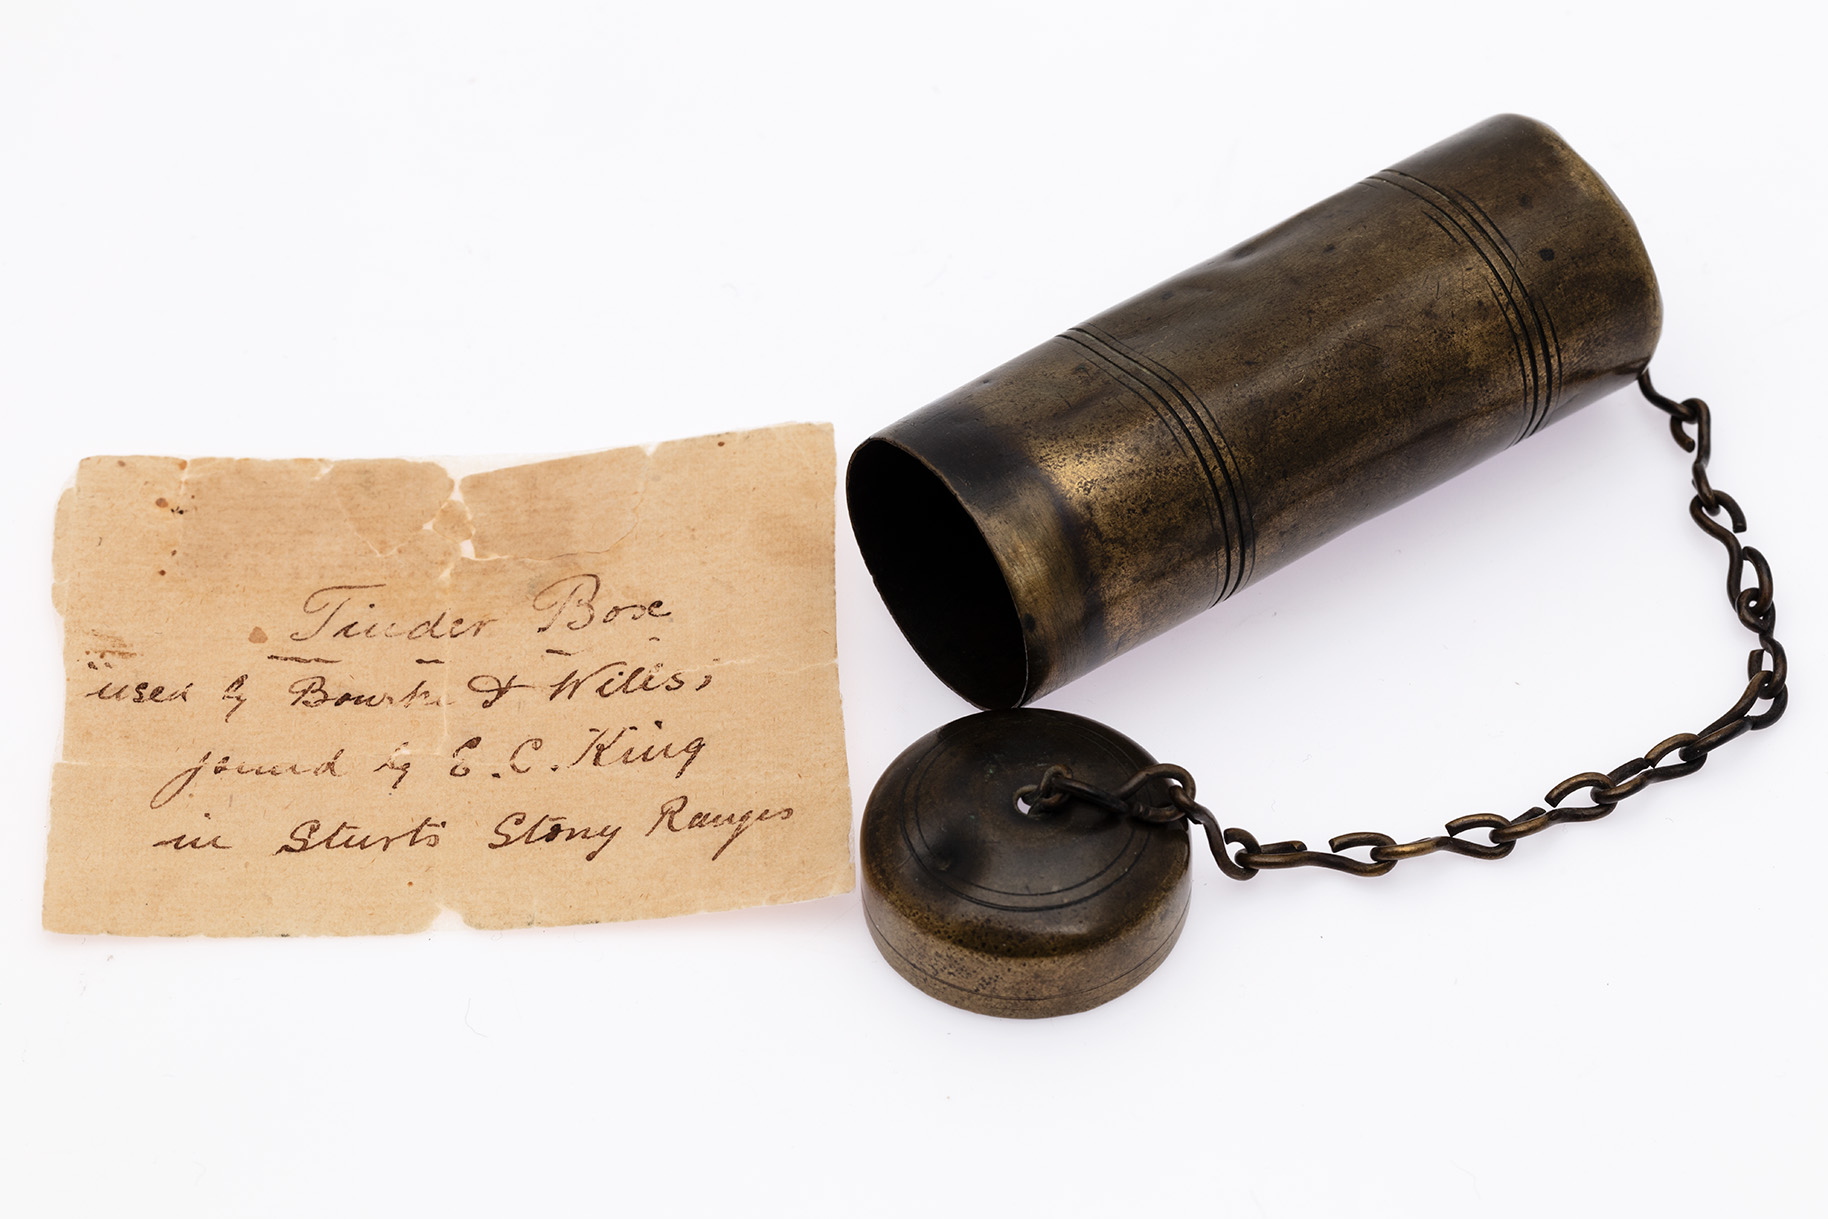 Tinder Box
used by Bourke & Wills,
found by E. C. King
in Sturts Stony Ranges